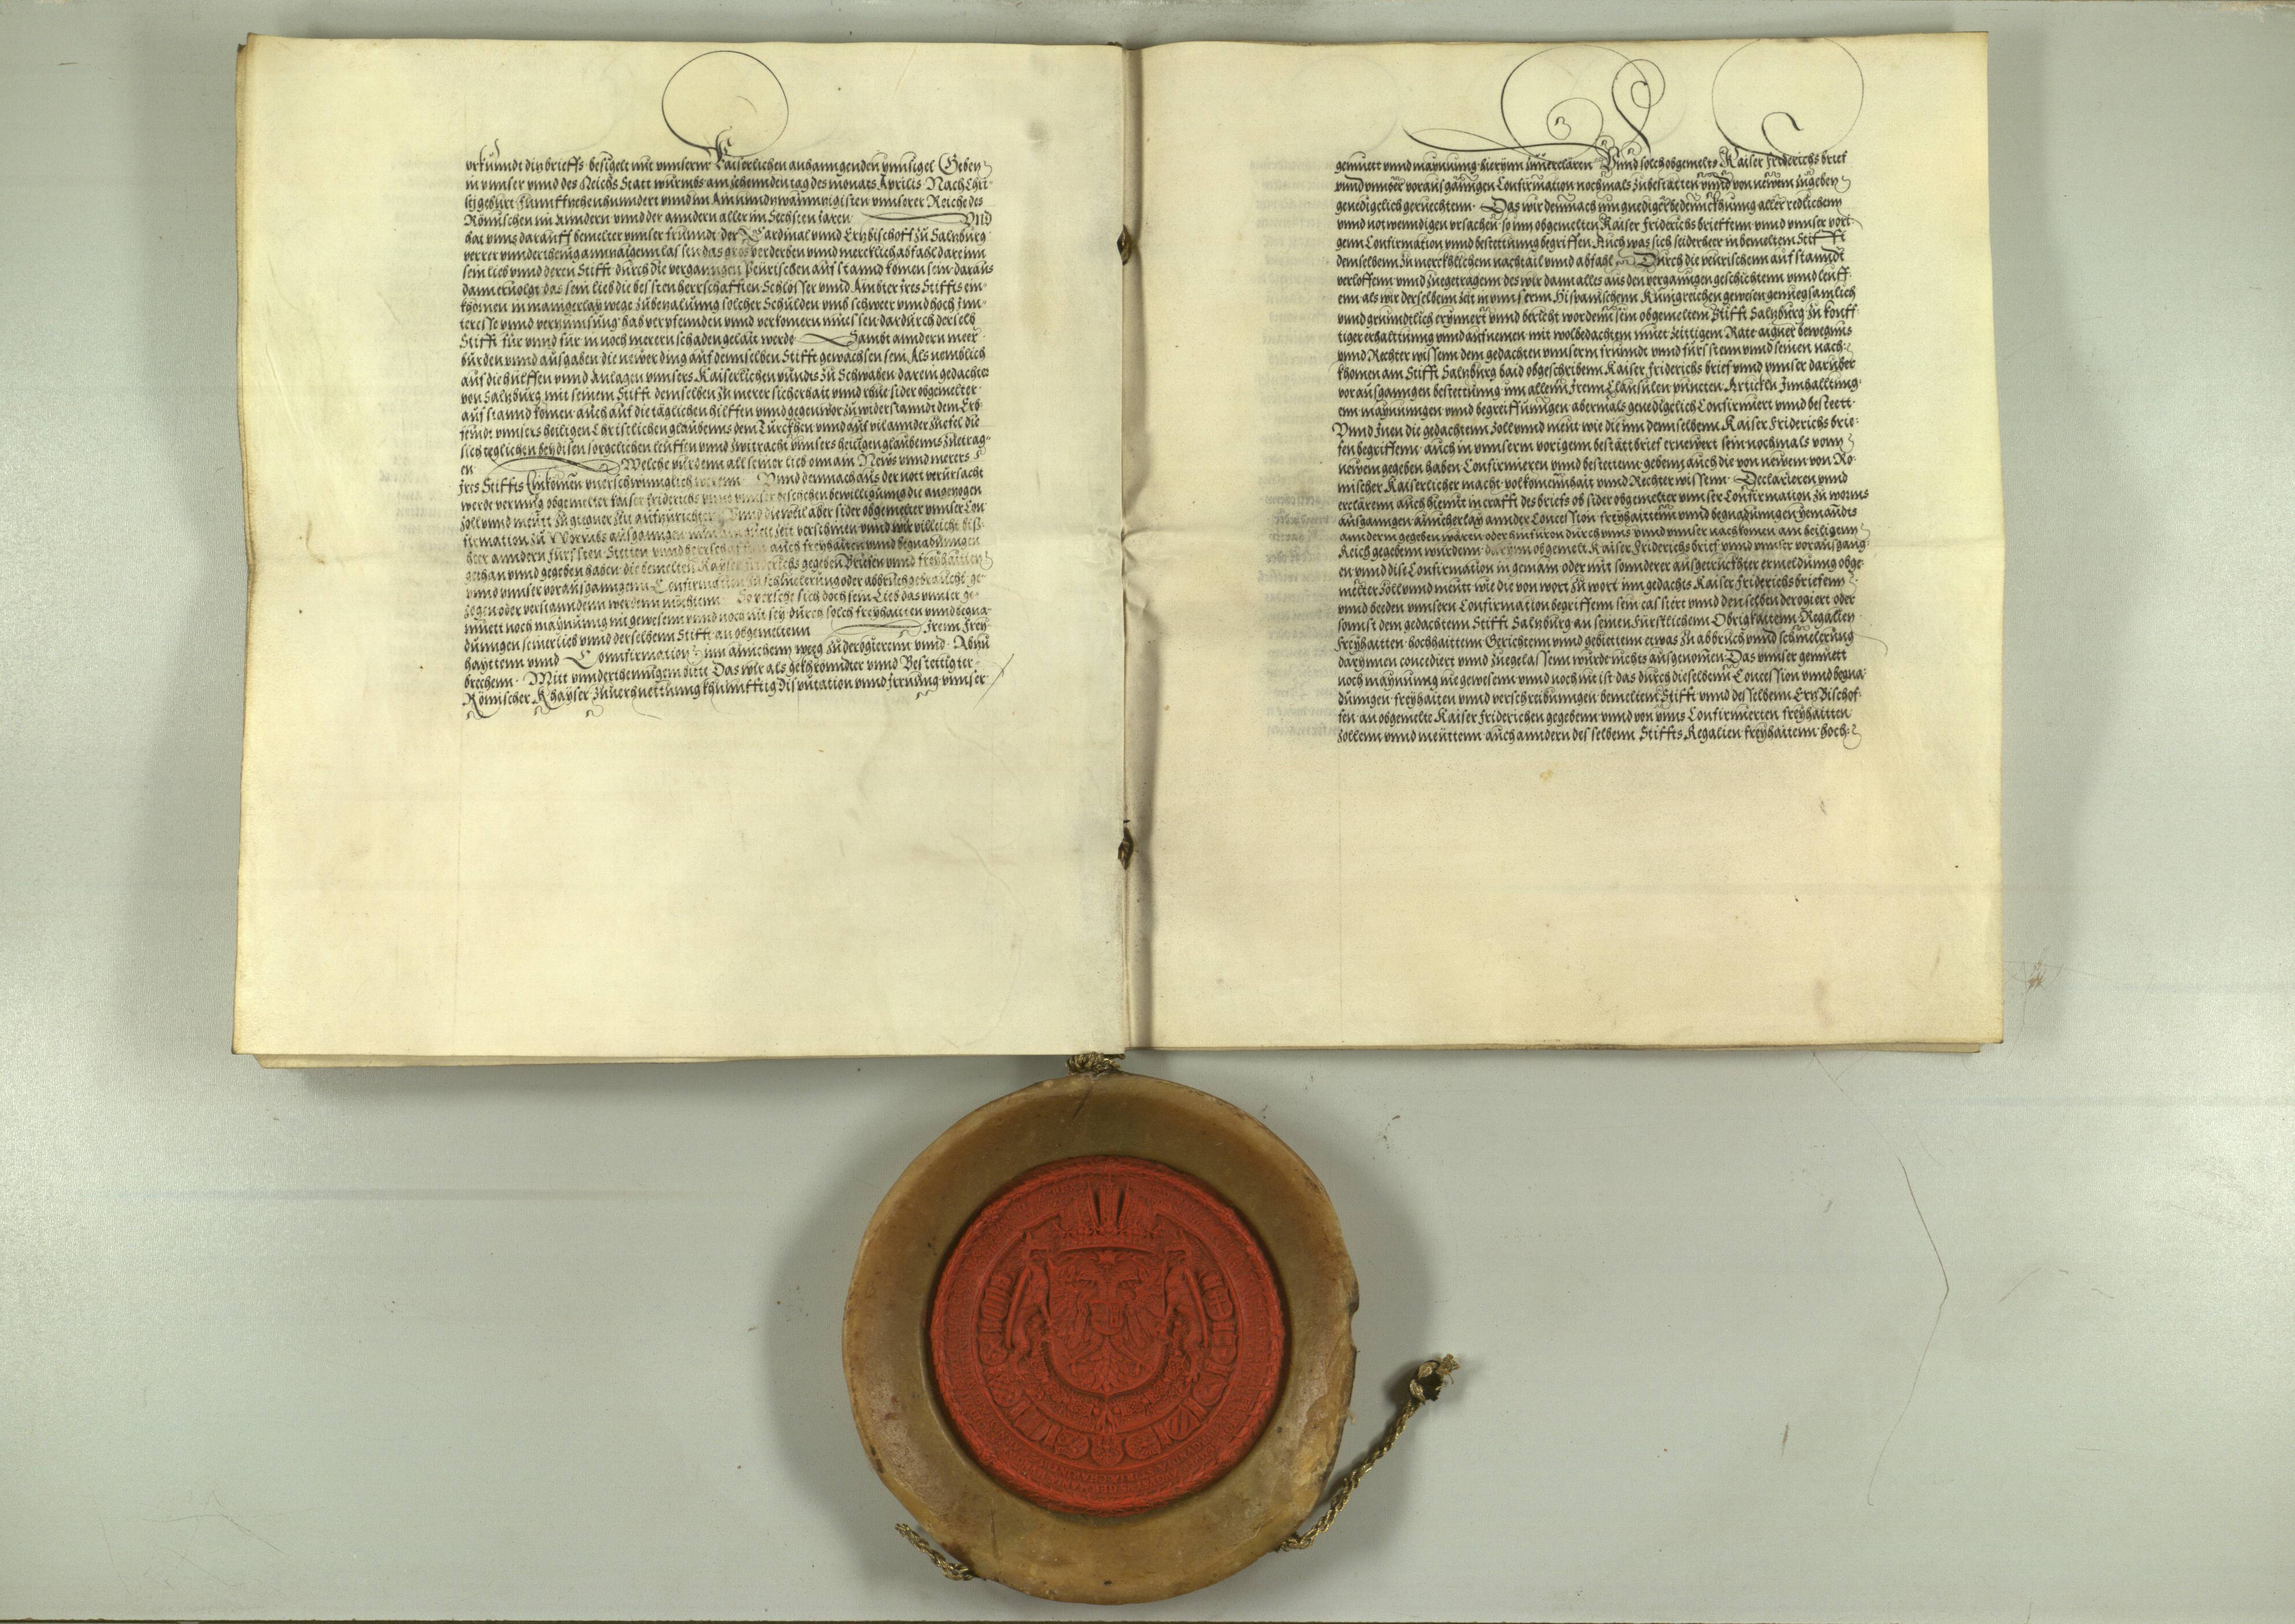 vrkhundt ditz brieffs besigelt mit vnnserm Kaiserlichen anhanngenden ynnsigel Geben
in vnnser vnnd des Reichs Statt wurmbs am zehennden tag des monats Aprilis Nach Chri
sti geburt funnffzehenhundert vnnd im Ainundzwainntzigisten vnnserer Reiche des
Römischen im Anndern vnnd der anndern aller im Sechsten Jaren Vnd
hat vnns darauff bemelter vnnser fründt der Cardinal vnnd Ertzbischoff zu Saltzburg
verrer vnndertheinig anntzaigenn lassen das gros verderben vnnd mercklich abfahl darein
sein lieb vnnd deren Stifft durch die verganngen Peurischen aufstannd komen sein daraus
dann ervolgt das sein lieb die besten herrschafften Schlosser vnnd Ambter Jres Stiffts ein
khomen in maingerlay wege zu betzalung solcher Schulden vmb schwer vnnd hoch Jnn
teresse vnnd vertzinnsung hab verpfennden vnnd verkomern müessen dardurch derselb
Stifft für vnnd für in noch merern schaden gelait werde Sambt anndern meer
bürden vnnd ausgaben die newerding auf dennselben Stifft gewachsen sein Als nemblich
auf die hülffen vnnd Anlagen vnnsers Kaiserlichen pundts zu Schwaben darein gedachter
von Saltzburg mit seinem Stifft demselben zu merer sicherhait vnnd rhue sider obgemelter
aufstannd komen auch auf die täglichen hilffen vnnd gegenwör zu widerstanndt dem Erb
feindt vnnsers heiligen Christlichen glaubenns dem Türckhen vnnd auf vil annder zuefel die
sich teglichen bey disen sorgelichen leuffen vnnd zwitracht vnnsers heiligen glaubenns zuetrag
en Welche pürdenn all seiner lieb onn ain News vnnd merers
Jres Stiffts Einkomen vnerschwinnglich Vnnd demnach aus der nott verursacht
werde vermüg obgemelter kaiser friderichs vnnd vnnser beschehen bewilligung die angezogen
zoll vnnd meutt zu aigner zeit aufzurichten Vnnd dieweil aber sider obgemelter vnnser Con
firmation zu Wormbs ausganngen zeit verschinen vnnd wir villeicht bisz
heer anndern fürssten Stetten vnnd herrschafften auch freyhaiten vnnd begnadungen
gethan vnnd gegeben haben die bemelten Kayser friderichs gegeben Briefen vnnd freyhaitten
vnnd vnnser vorausganngenn Confirmation zu schmelerung oder abbruch gebraucht ge
zogen oder verstanndenn werdenn möchtenn So versehe sich doch sein Lieb das vnnser ge
müett noch maynung nit gewesenn vnnd noch nit sey durch solch freyhaitten vnnd begna
dungen seiner lieb vnnd derselbenn Stifft an obgemeltenn Jrenn Frey
hayttenn vnnd Connfirmation inn ainichenn weeg zu derogierenn vnnd Abzu
brechenn Mitt vnnderthenigem bitte Das wir als gekhronnter vnnd Bestettigter
Römischer Khayser zuuerhuettung khunfftig disputation vnnd Jrrung vnnser
gemuett vnnd maynung hierynn zuuerclären Vnnd solch obgemelts Kaiser friderichs brief
vnnd vnnser vorausganngen Confirmation nochmals zu bestatten vnnd von newem zugeben
genedigelich geruechtenn Das wir demnach inn gnediger bedennckhnung aller redlichenn
vnnd notwenndigen vrsachen so inn obgemelten Kaiser friderichs brieffenn vnnd vnnser vori
genn Confirmation vnnd bestettung begriffen Auch was sich seidherr in bemeltem Stifft
demselbenn zu merckhlichem nachtail vnnd abfahl Durch die peurischenn aufstanndt
verloffenn vnnd zuegetragenn des wir dann alles aus den verganngen geschichtenn vnnd leuff
enn als wir derselbenn zeit in vnnsernn Hispanischenn Kunigreichen gewesen genuegsamlich
vnnd gründtlich erynnert vnnd bericht wordenn sein obgemeltem Stifft Saltzburg zu konff
tiger erhalttung vnnd aufnemen mit wolbedachtem muet zeittigem Rate aigner bewegnus
vnnd Rechter wissenn dem gedachten vnnserm fründt vnnd fürsstenn vnnd seinen nach
khomen am Stifft Saltzburg baid obgeschribenn Kaiser friderichs brief vnnd vnnser darüber
vorausganngen bestettung inn allenn Jrenn Clausulen puncten Artickln Jnnhalttung
enn maynungen vnnd begreiffungen abermals genedigelich Confirmiert vnnd bestett
Vnnd Jnen die gedachtenn zoll vnnd meut wie die inn dennselbenn Kaiser friderichs brie
fen begriffenn auch in vnnserm vorigenn bestättbrief ernewert sein nochmals vonn
newem gegeben haben Confirmieren vnnd bestettenn gebenn auch die von newem von Ro
mischer Kaiserlicher macht volkomennhait vnnd Rechter wissenn Declarieren vnnd
erclärenn auch hiemit in crafft des briefs ob sider obgemelter vnnser Confirmation zu worms
ausganngen ainicherlay annder Concession freyhaittenn vnnd begnadungen yemandts
anderm gegeben wären oder hinfüron durch vnns vnnd vnnser nachkomen am heiligenn
Reich gegebenn wurdenn darynn obgemelt Kaiser friderichs brief vnnd vnnser vorausgang
en vnnd dise Confirmation in gemain oder mit sonnderer ausgetruckhter ermeldung obge
melter zoll vnnd meutt wie die von wort zu wort inn gedachts Kaiser friderichs briefenn
vnnd beeden vnnsern Confirmation begriffenn sein cassiert vnnd denselben derogiert oder
sonnst dem gedachtenn Stifft Saltzburg an seinen fürstlichenn Obrigkaittenn Regalien
freyhaitten hochhaittenn Gerichtenn vnnd gebiettenn etwas zu abbruch vnnd schmelerung
darynnen concediert vnnd zuegelassenn wurde nichts ausgenomen Das vnnser gemuett
noch maynung nie gewesenn vnnd noch nie ist das durch dieselbenn Concession vnnd begna
dungen freyhaiten vnnd verschreibungen bemeltem Stifft vnnd desselbenn Ertz Bischof
fen an obgemelte Kaiser friderichen gegebenn vnnd von vnns Confirmierten freyhaitten
zollenn vnnd meuttenn auch anndern desselbenn Stiffts Regalien freyhaitenn hoch